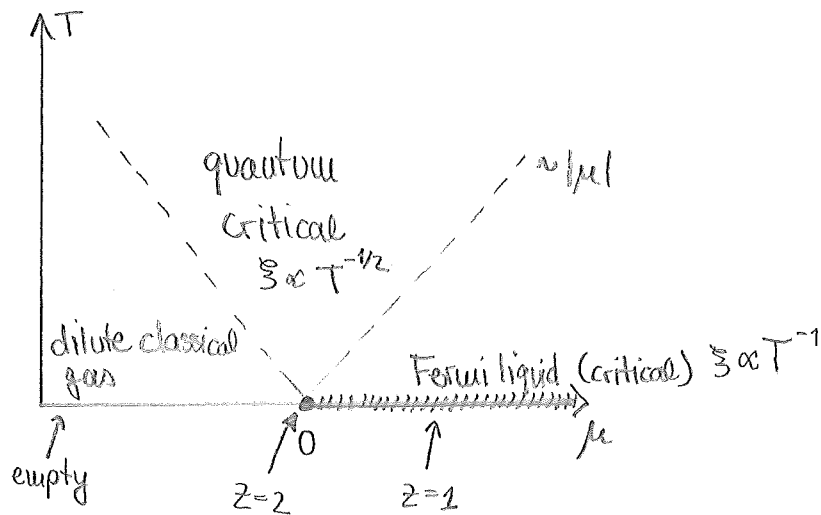 T
quantum
critical
ξ ∝ T^{-1/2}
~|μ|
dilute classical
gas
Fermi liquid (critical) ξ ∝ T^{-1}
0
μ
empty
z=2
z=1